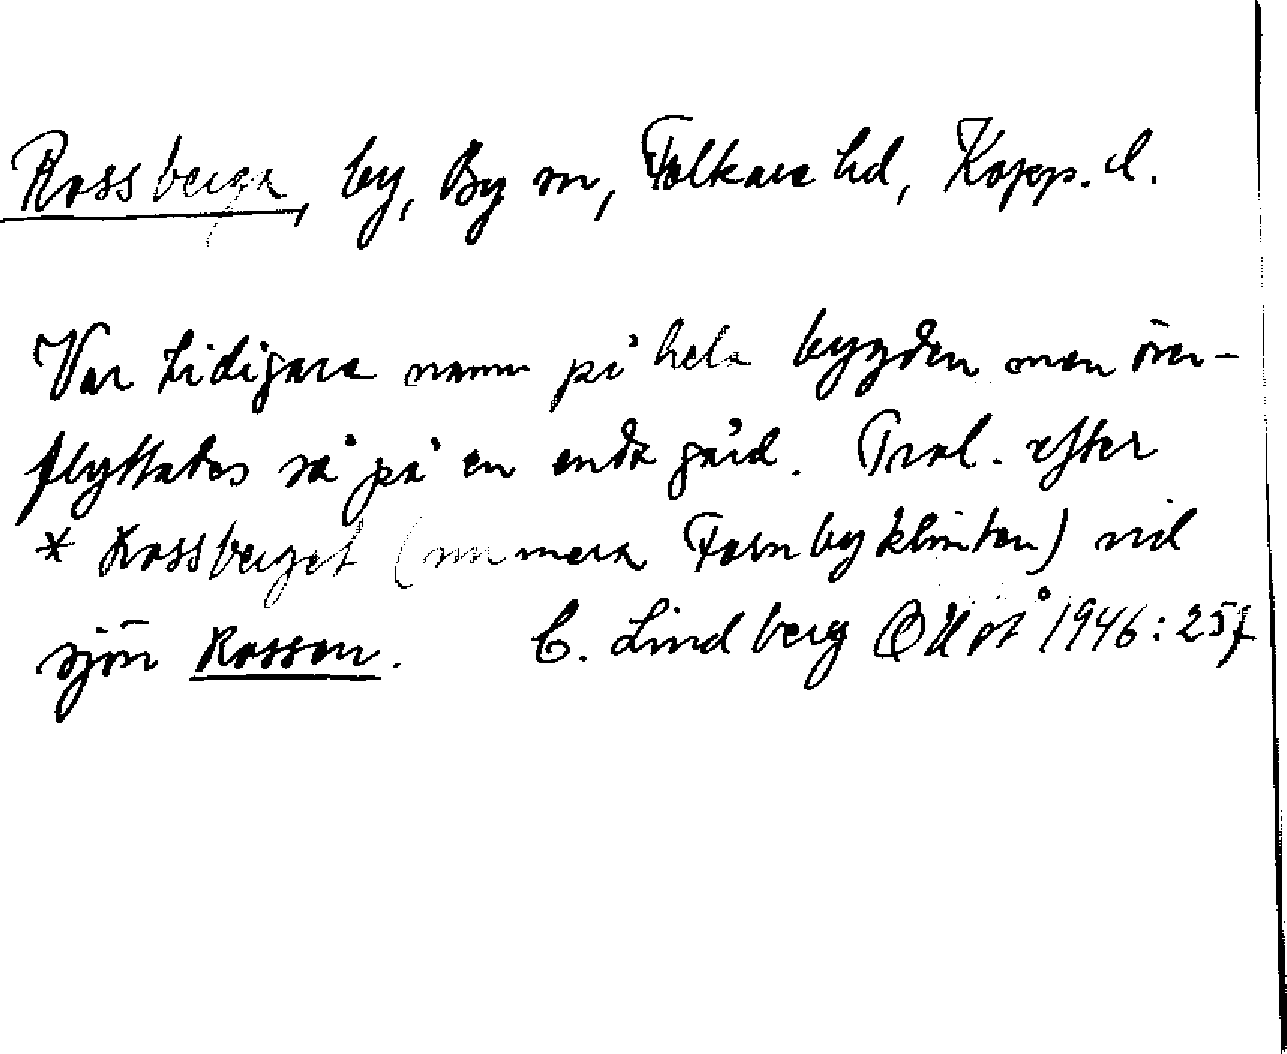 Rossberga, by, By sn, Folkare hd, Kopp. l.
Var tidigare namn på hela bygden men över-
flyttades så på en enda gård. Trol. efter
* Rossberget (nu mera Fornbyklinten) vid
sjön Rossen. C. Lindberg 1946: 257